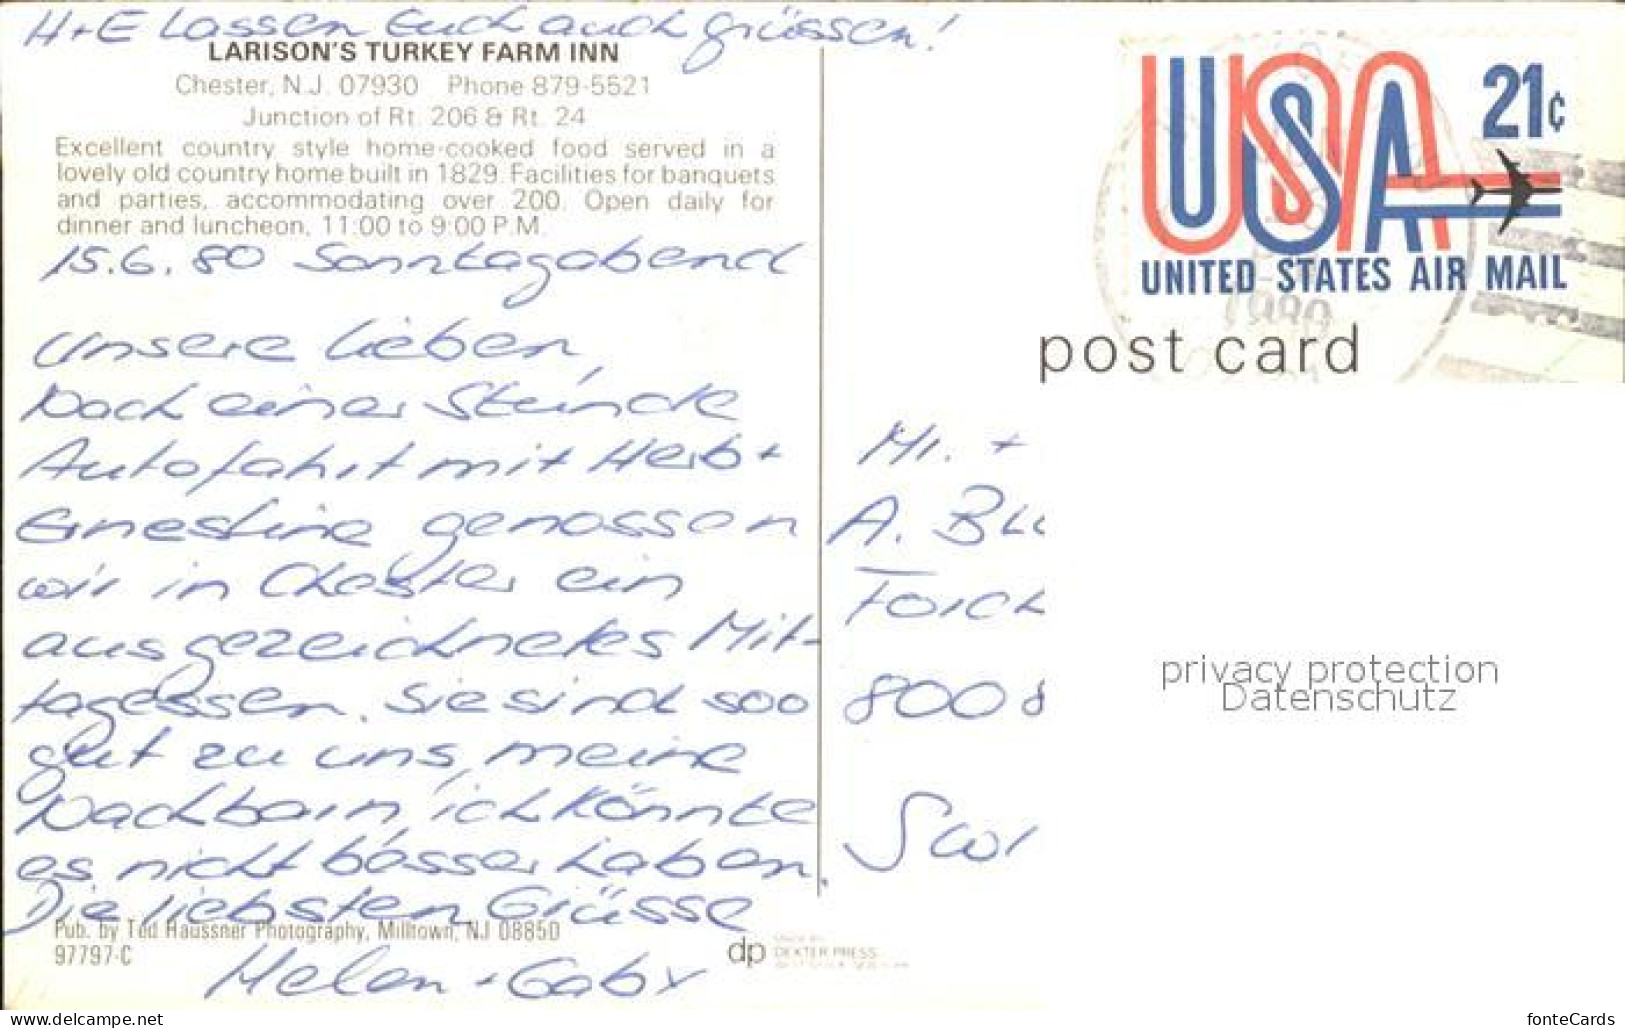 H+E lassen Euch auch grüssen!
LARISON'S TURKEY FARM INN
Chester, N.J. 07930 Phone 879-5521
Junction of Rt. 206 & Rt. 24
Excellent country style home-cooked food served in a
lovely old country home built in 1829. Facilities for banquets
and parties, accommodating over 200. Open daily for
dinner and luncheon, 11:00 to 9:00 P.M.
15.6.80 Sonntagabend
Unsere Lieben,
Nach einer Stunde
Autofahrt mit Herb +
Ernestine genossen
wir in Chester ein
ausgezeichnetes Mit-
tagessen. Sie sind soo
gut zu uns, meine
Nachbarn, ich könnte
es nicht besser haben.
Die liebsten Grüsse
Helen + Gaby
Pub. by Ted Haussner Photography, Milltown, NJ 08850
97797-C
dp
DEXTER PRESS
USA 21¢
UNITED STATES AIR MAIL
1980
post card
Mr. +
A.
8008
privacy protection
Datenschutz
www.delcampe.net
fonteCards